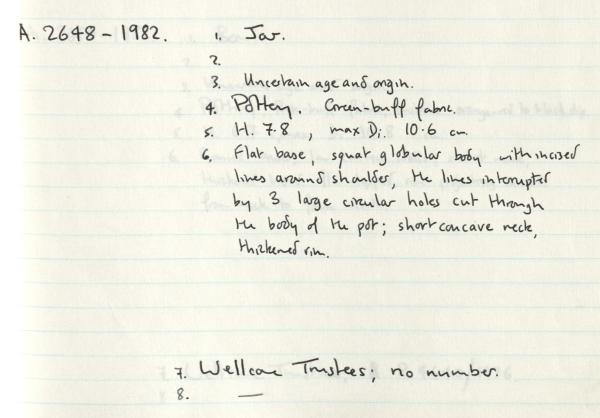 A. 2648-1982. 1. Jar.
2.
3. Uncertain age and origin.
4. Pottery. Green-buff fabric.
5. H. 7.8, max Di. 10.6 cm
6. Flat base, squat globular body with incised
lines around shoulder, the lines interrupted
by 3 large circular holes cut through
the body of the pot; short concave neck,
thickened rim.
7. Wellcome Trustees; no number.
8. —